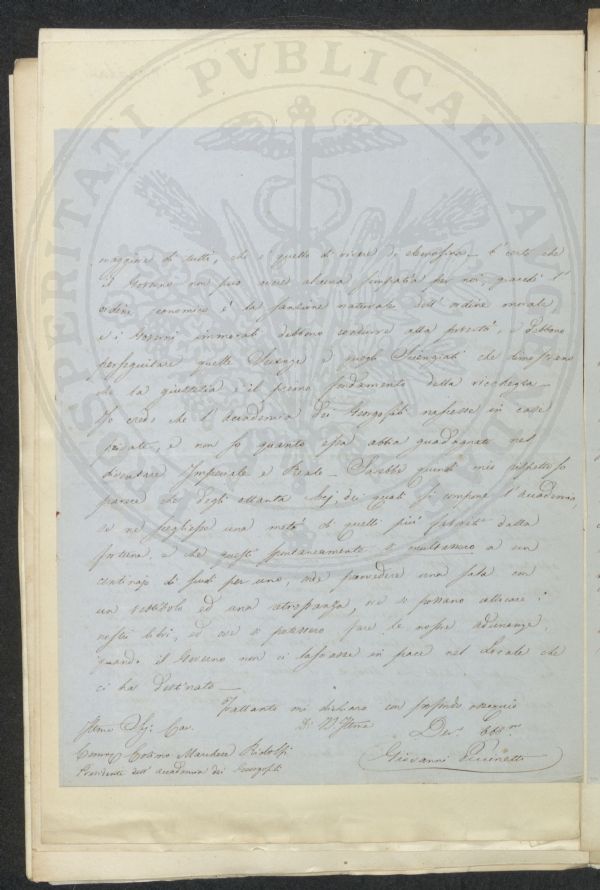 PROSPERITATI PVBLICAE AVGENDAE
maggiore di tutti, che è quello di vivere di elemosina — È certo che
il Governo non può avere alcuna simpatia per noi, giacchè l'
ordine economico è la sanzione naturale dell'ordine morale
e i Governi immorali debbono condurre alla povertà, e debbono
perseguitare quelle Scienze e quegli Scienziati che dimostrano
che la giustizia è il primo fondamento della ricchezza —
Io credo che l'Accademia dei Georgofili nascesse in case
private, e non so quanto essa abbia guadagnato nel
diventare Imperiale e Reale — Sarebbe quindi mio rispettoso
parere che degli ottanta Socj, dei quali si compone l'Accademia,
se ne scegliesse una metà di quelli più favoriti dalla
fortuna e che questi spontaneamente si multassero a un
centinajo di scudi per uno, onde provvedere una sala con
un vestibolo ed una altra stanza, ove si possano collocare i
nostri libri, ed ove si potessero fare le nostre adunanze,
quando il Governo non ci lasciasse in pace nel Locale che
ci ha destinato —
Frattanto mi dichiaro con profondo ossequio
Illmo Sig: Cav.
Di V. Illma
Cosimo Marchese Ridolfi
Dev.
Presidente dell'Accademia dei Georgofili
Giovanni